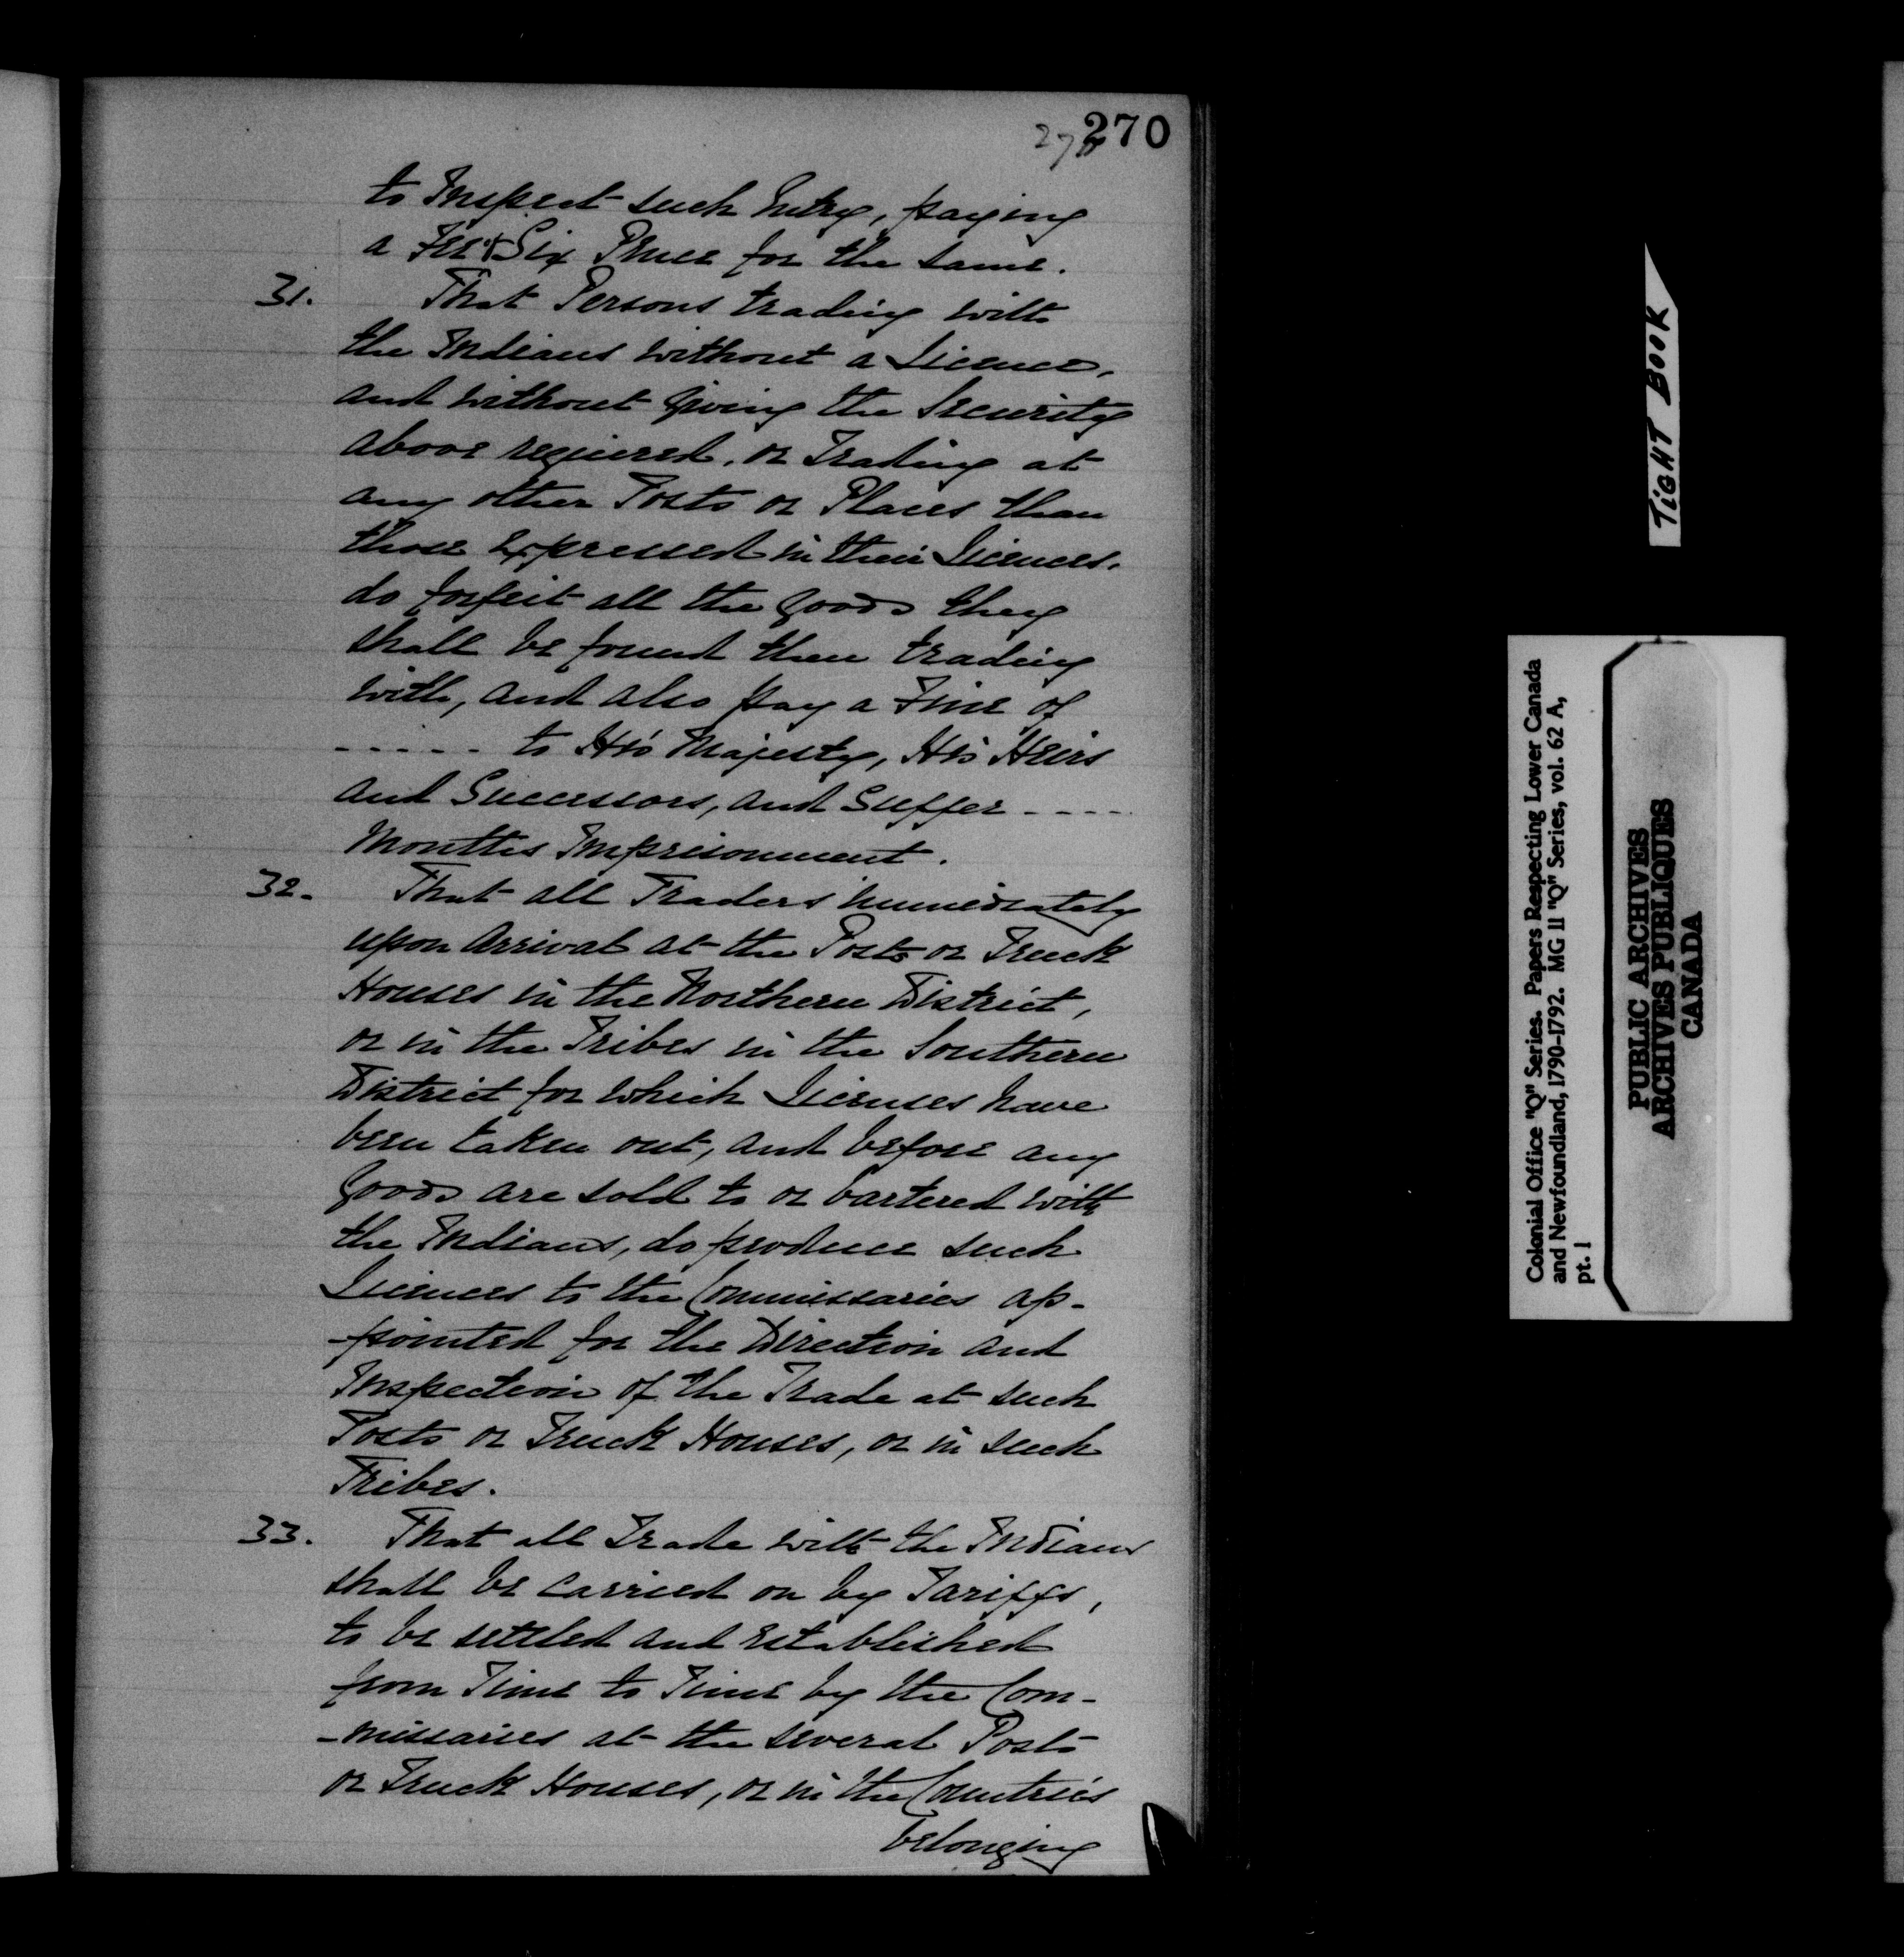 270
27
to Inspect such Entry, paying
a Fee of Six Pence for the same.
31. That Persons trading with
the Indians without a Licence,
and without Giving the Security
above required, or Trading at
any other Posts or Places than
those Expressed in their Licences,
do forfeit all the Goods they
shall be found then trading
with, and also pay a Fine of
----- to His Majesty, His Heirs
and Successors, and Suffer ----
Months Imprisonment.
32. That all Traders immediately
upon Arrival at the Posts or Truck
Houses in the Northern District,
or in the Tribes in the Southern
District for which Licenses have
been taken out, and before any
Goods are sold to or bartered with
the Indians, do produce such
Licences to the Commissaries ap-
-pointed for the Direction and
Inspection of the Trade at such
Posts or Truck Houses, or in such
Tribes.
33. That all Trade with the Indians
shall be carried on by Tariffs,
to be settled and Established
from Time to Time by the Com-
-missaries at the several Posts
or Truck Houses, or in the Countries
belonging
TiGHT BOOK
Colonial Office "Q" Series. Papers Respecting Lower Canada
and Newfoundland, 1790-1792. MG 11 "Q" Series, vol. 62 A,
pt. 1
PUBLIC ARCHIVES
ARCHIVES PUBLIQUES
CANADA